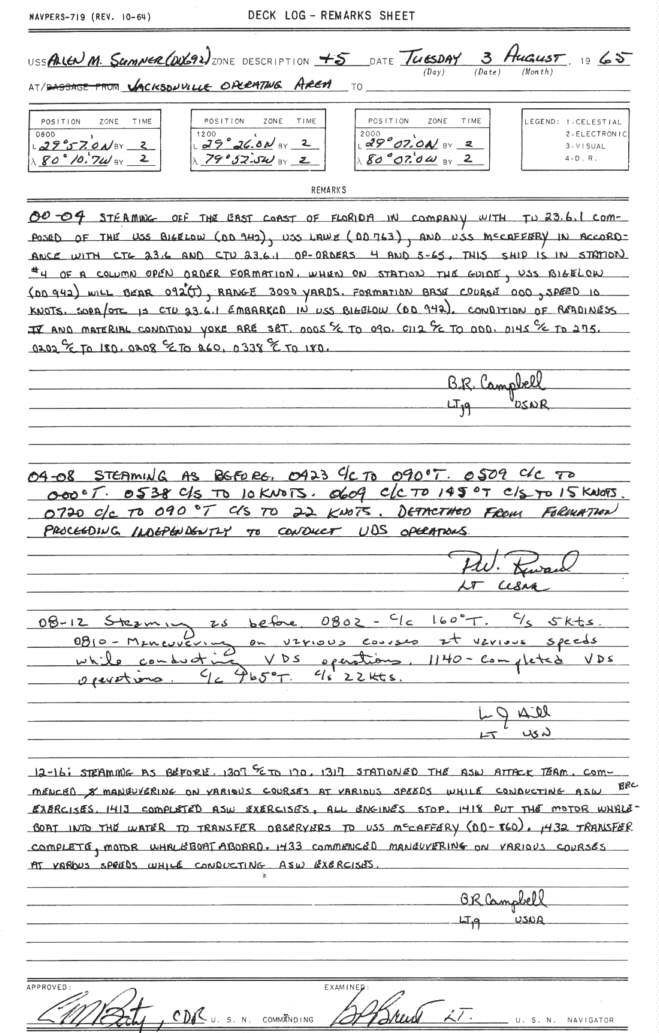 NAVPERS-719 (REV. 10-64)
DECK LOG – REMARKS SHEET
USS ALLEN M. SUMNER (DD692) ZONE DESCRIPTION +5 DATE TUESDAY 3 AUGUST, 19 65
(Day) (Date) (Month)
AT/PASSAGE FROM JACKSONVILLE OPERATING AREA TO
POSITION ZONE TIME
0800
L 29°57.0N BY 2
λ 80°10.7W BY 2
POSITION ZONE TIME
1200
L 29°26.0N BY 2
λ 79°52.5W BY 2
POSITION ZONE TIME
2000
L 29°07.0N BY 2
λ 80°07.0W BY 2
LEGEND: 1-CELESTIAL
2-ELECTRONIC
3-VISUAL
4-D.R.
REMARKS
00-04 STEAMING OFF THE EAST COAST OF FLORIDA IN COMPANY WITH TU 23.6.1 COM-
POSED OF THE USS BIGELOW (DD 942), USS LAWE (DD 763), AND USS MCCAFFERY IN ACCORD-
ANCE WITH CTG 23.6 AND CTU 23.6.1 OP-ORDERS 4 AND 5-65. THIS SHIP IS IN STATION
#4 OF A COLUMN OPEN ORDER FORMATION. WHEN ON STATION THE GUIDE, USS BIGELOW
(DD 942) WILL BEAR 092°(T), RANGE 3000 YARDS. FORMATION BASE COURSE 000, SPEED 10
KNOTS. SOPA/OTC IS CTU 23.6.1 EMBARKED IN USS BIGELOW (DD 942). CONDITION OF READINESS
IV AND MATERIAL CONDITION YOKE ARE SET. 0005 C/C TO 090. 0112 C/C TO 000. 0145 C/C TO 275.
0202 C/C TO 180. 0208 C/C TO 260. 0338 C/C TO 180.
B.R. Campbell
LTjg USNR
04-08 STEAMING AS BEFORE. 0423 C/C TO 090°T. 0509 C/C TO
000°T. 0538 C/S TO 10 KNOTS. 0609 C/C TO 145°T C/S TO 15 KNOTS.
0720 C/C TO 090°T C/S TO 22 KNOTS. DETACTHED FROM FORMATION
PROCEEDING INDEPENDENTLY TO CONDUCT VDS OPERATIONS
LT USNR
08-12 Steaming as before. 0802 - C/c 160°T. C/s 5kts.
0810 - Maneuvering on various courses at various speeds
while conducting VDS operations. 1140 - Completed VDS
operations. C/c 265°T. C/s 22kts.
L J Hill
LT USN
12-16: STEAMING AS BEFORE. 1307 C/C TO 170. 1317 STATIONED THE ASW ATTACK TEAM. COM-
MENCED MANEUVERING ON VARIOUS COURSES AT VARIOUS SPEEDS WHILE CONDUCTING ASW BRC
EXERCISES. 1413 COMPLETED ASW EXERCISES, ALL ENGINES STOP. 1418 PUT THE MOTOR WHALE-
BOAT INTO THE WATER TO TRANSFER OBSERVERS TO USS MCCAFFERY (DD-860). 1432 TRANSFER
COMPLETE, MOTOR WHALEBOAT ABOARD. 1433 COMMENCED MANEUVERING ON VARIOUS COURSES
AT VARIOUS SPEEDS WHILE CONDUCTING ASW EXERCISES.
BR Campbell
LTjg USNR
APPROVED:
EXAMINED:
CDR U. S. N. COMMANDING
LT. U. S. N. NAVIGATOR